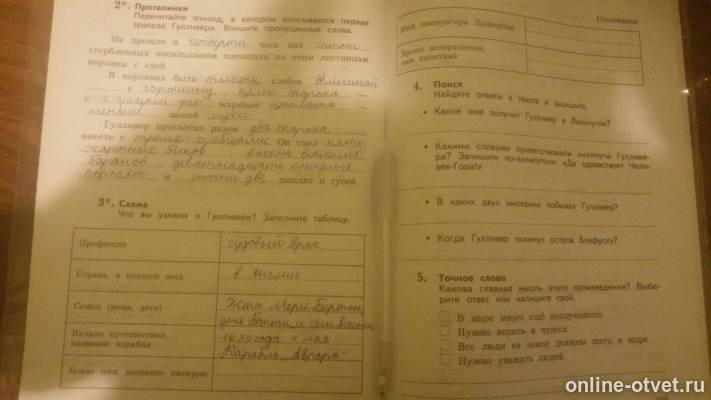 2*. Проталинки
Перечитайте эпизод, в котором описывается первая
трапеза Гулливера. Впишите пропущенные слова.
Не прошло и четверти часа, как сотни
сгорбленных носильщиков потащили по этим лестницам
корзины с едой.
В корзинах были тысячи хлебов величиной
с горошину, целые окорока
с грецкий орех, жареные цыплята
меньше нашей мухи.
Гулливер проглотил разом два окорока
вместе с тремя хлебцами. Он съел пять
жаренных быков, восемь вяленых
баранов, девятнадцать копчёных
поросят и сотни две цыплят и гусей.
3*. Схема
Что вы узнали о Гулливере? Заполните таблицу.
Профессия судовый врач
Страна, в которой жил в Англии
Семья (жена, дети) Жена Мери Бёртон,
дочь Бетти и сын Джонни
Начало путешествия, 1699 года 4 мая
название корабля Корабль "Аврора"
Новое имя, название империи
Имя императора Лилипутии
Время возвращения,
имя капитана
4. Поиск
Найдите ответы в тексте и запишите.
• Какое имя получил Гулливер в Лилипутии?
• Какими словами приветствовали лилипуты Гулливе-
ра? Запишите по-лилипутски: «Да здравствует Чело-
век-Гора!»
• В каких двух империях побывал Гулливер?
• Когда Гулливер покинул остров Блефуску?
5. Точное слово
Какова главная мысль этого произведения? Выбе-
рите ответ или напишите свой.
В мире много ещё неизученного.
Нужно верить в чудеса.
Все люди на земле должны жить в мире.
Нужно уважать людей.
online-otvet.ru